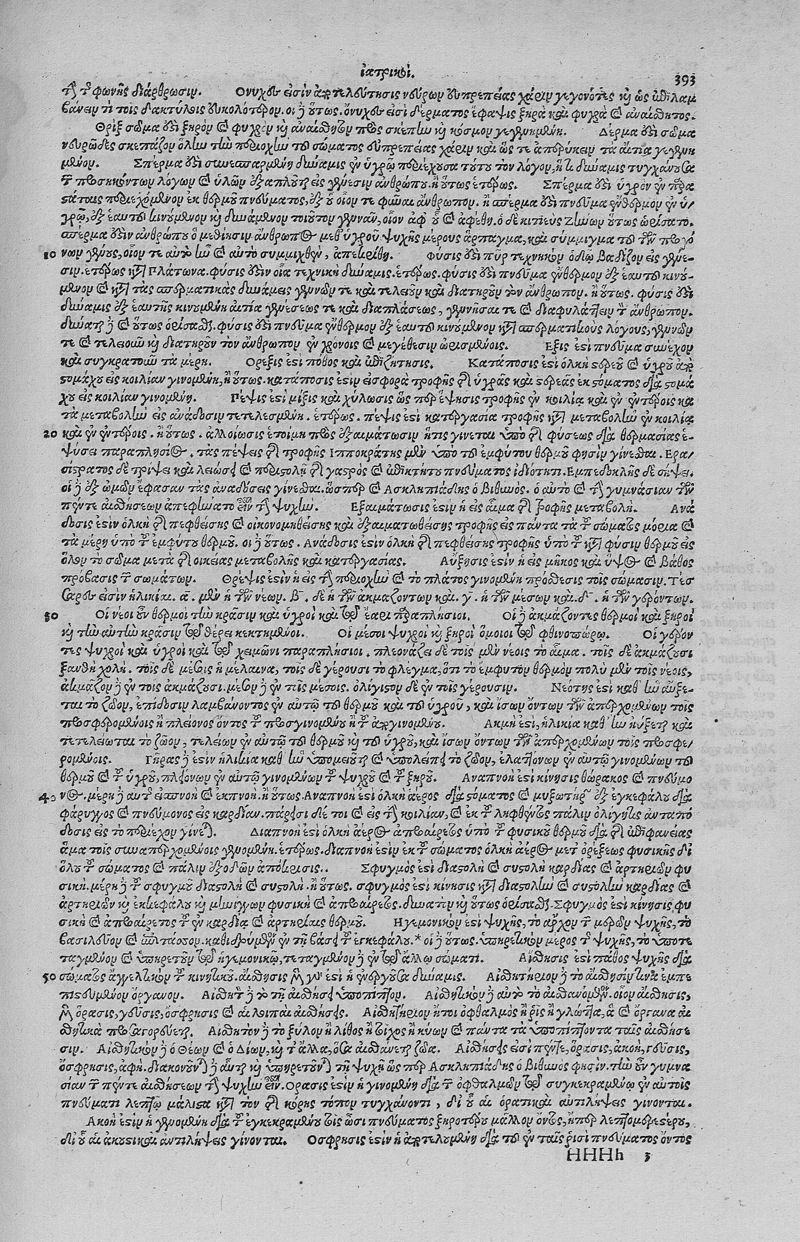 ἰατρικοί. 393
τῆς φωνῆς διάρθρωσιν. Ὄνυχές εἰσιν ἀποτελεύτησις νεύρων εὐπρεπείας χάριν γεγονότες καὶ ὡς ἐπιλαμ
βάνειν τι τοῖς δακτύλοις εὐκολότερον. οἱ δὲ οὕτως. ὄνυχές εἰσι δέρματος ἔφαψις ξηρὰ καὶ ψυχρὰ καὶ ἀναίσθητος.
Θρίξ σῶμά ἐστι ξηρὸν καὶ ψυχρὸν καὶ ἀναίσθητον πρὸς σκέπην καὶ κόσμον γεγενημένον. Δέρμα ἐστὶ σῶμα
νευρῶδες σκεπάζον ὅλην τὴν περιοχὴν τοῦ σώματος εὐπρεπείας χάριν καὶ ὥς τε ἀπερύκειν τὰ αἴτια γεγενη
μένον. Σπέρμα ἐστὶ συνεσπαρμένη δύναμις ἐν ὑγρῷ περιέχουσα τοῦτο τὸν λόγον, ἢ δύναμις τυγχάνουσα
τῶν προσηκόντων λόγων καὶ ὑλῶν ἐξαπλοῦται εἰς γένεσιν ἀνθρώπου. ἢ οὕτως ἑτέρως. Σπέρμα ἐστὶ ὑγρὸν ἐν πέρα
σώματος περιεχόμενον ἐκ θερμοῦ πνεύματος, ἐξ οὗ οἷόν τε φῦναι ἄνθρωπον. ἢ σπέρμα ἐστὶ πνεῦμα ἔνθερμον ἐν ὑ-
γρῷ, ἐξ ἑαυτοῦ κινούμενον καὶ δυνάμενον τοιοῦτον γεννᾶν, οἷον ἀφ᾽ οὗ καὶ ἀφείθη. ὁ δὲ κιτιεὺς Ζήνων οὕτως ὡρίσατο.
σπέρμα ἐστὶν ἀνθρώπου ὃ μεθίησιν ἄνθρωπος μεθ᾽ ὑγροῦ ψυχῆς μέρους ἅρπαγμα, καὶ σύμμιγμα τοῦ τῶν προγό
10 νων γένους, οἷόν τε αὐτὸ ἦν καὶ αὐτὸ συμμιχθὲν, ἀπεκρίθη. Φύσις ἐστὶ πῦρ τεχνικὸν ὁδῷ βαδίζον εἰς γένε-
σιν. ἑτέρως κατὰ Πλάτωνα. φύσις ἐστὶν οἷα τεχνικὴ δύναμις. ἑτέρως. φύσις ἐστὶ πνεῦμα ἔνθερμον ἐξ ἑαυτοῦ κινού-
μενον καὶ κατὰ τὰς σπερματικὰς δυνάμεις γεννῶν τε καὶ τελειοῦν καὶ διατηροῦν τὸν ἄνθρωπον. ἢ οὕτως. φύσις ἐστὶ
δύναμις ἐξ ἑαυτῆς κινουμένη αἰτία γενέσεώς τε καὶ διαπλάσεως, γεννῆσαί τε καὶ διαφυλάττειν τὸν ἄνθρωπον.
δύναται δὲ καὶ οὕτως ὁρίσασθαι. φύσις ἐστὶ πνεῦμα ἔνθερμον ἐξ ἑαυτοῦ κινούμενον κατὰ σπερματικοὺς λόγους, γεννῶν
τε καὶ τελειοῦν καὶ διατηροῦν τὸν ἄνθρωπον ἐν χρόνοις καὶ μεγέθεσιν ὡρισμένοις. Ἕξις ἐστὶ πνεῦμα συνέχον
καὶ συγκρατοῦν τὰ μέρη. Ὄρεξίς ἐστι πόθος καὶ ἐπιζήτησις. Κατάποσίς ἐστι ὁλκὴ στερεοῦ καὶ ὑγροῦ ἀπὸ
στομάχου εἰς κοιλίαν γινομένη, ἢ οὕτως. κατάποσίς ἐστιν εἰσφορὰ τροφῆς τῆς ὑγρᾶς καὶ στερεᾶς ἐκ στόματος διὰ στομά
χου εἰς κοιλίαν γινομένη. Πέψις ἐστὶ μίξις καὶ χύλωσις ὥσπερ ἕψησις τροφῆς ἐν κοιλίᾳ καὶ ἐν ἐντέροις κα
τὰ μεταβολὴν εἰς ἀνάδοσιν τετελεσμένη. ἑτέρως. πέψις ἐστὶ κατεργασία τροφῆς κατὰ μεταβολὴν ἐν κοιλίᾳ
20 καὶ ἐν ἐντέροις. ἢ οὕτως. ἀλλοίωσις ἑτοίμη πρὸς ἐξαιμάτωσιν ἥτις γίνεται ὑπὸ τῆς φύσεως διὰ θερμασίας ἑ-
ψήσει παραπλησίως. τὰς πέψεις τῆς τροφῆς Ἱπποκράτης μὲν ὑπὸ τοῦ ἐμφύτου θερμοῦ φησὶν γίνεσθαι. Ἐρα-
σίστρατος δὲ τρίψει καὶ λειώσει καὶ περιστολῇ τῆς γαστρὸς καὶ ἐπικτήτου πνεύματος ἰδιότητι. Ἐμπεδοκλῆς δὲ σήψει.
οἱ δὲ ἐξ ὠμῶν ἔφασαν τὰς ἀναδόσεις γίνεσθαι. ὥσπερ καὶ Ἀσκληπιάδης ὁ Βιθυνός. ὁ αὐτὸς καὶ τὴν γυμνασίαν τῶν
πέντε αἰσθήσεων ἀπεφήνατο εἶναι τὴν ψυχήν. Ἐξαιμάτωσίς ἐστιν ἡ εἰς αἷμα τῆς τροφῆς μεταβολή. Ἀνά
δοσίς ἐστιν ὁλκὴ τῆς πεφθείσης καὶ οἰκονομηθείσης καὶ ἐξαιματωθείσης τροφῆς εἰς πάντα τὰ τοῦ σώματος μόρια καὶ
τὰ μέρη ὑπὸ τοῦ ἐμφύτου θερμοῦ. οἱ δὲ οὕτως. Ἀνάδοσίς ἐστιν ὁλκὴ τῆς πεφθείσης τροφῆς ὑπὸ τοῦ κατὰ φύσιν θερμοῦ εἰς
ὅλον τὸ σῶμα μετὰ τῆς οἰκείας μεταβολῆς καὶ κατεργασίας. Αὔξησίς ἐστιν ἡ εἰς μῆκος καὶ ὕψος καὶ βάθος
πρόβασις τῶν σωμάτων. Θρέψις ἐστὶν ἡ εἰς τὴν περιοχὴν καὶ τὸ πλάτος γινομένη πρόθεσις τοῖς σώμασιν. Τέσ
σαρές εἰσιν ἡλικίαι. α. μὲν ἡ τῶν νέων. β. δὲ ἡ τῶν ἀκμαζόντων καὶ. γ. ἡ τῶν μέσων καὶ. δ. ἡ τῶν γερόντων.
30 Οἱ νέοι οὖν θερμοὶ τὴν κρᾶσιν καὶ ὑγροὶ καὶ τῷ ἔαρι παραπλήσιοι. Οἱ δὲ ἀκμάζοντες θερμοὶ καὶ ξηροὶ
καὶ τὴν αὐτὴν κρᾶσιν τῷ θέρει κεκτημένοι. Οἱ μέσοι ψυχροὶ καὶ ξηροὶ ὅμοιοι τῷ φθινοπώρῳ. Οἱ γέρον
τες ψυχροὶ καὶ ὑγροὶ καὶ τῷ χειμῶνι παραπλήσιοι. πλεονάζει δὲ τοῖς μὲν νέοις τὸ αἷμα. τοῖς δὲ ἀκμάζουσι
ξανθὴ χολή. τοῖς δὲ μέσοις ἡ μέλαινα, τοῖς δὲ γέρουσι τὸ φλέγμα, ὅτι τὸ ἔμφυτον θερμὸν πολὺ μὲν τοῖς νέοις,
ἀκμάζον δὲ ἐν τοῖς ἀκμάζουσι. μέσον δὲ ἐν τοῖς μέσοις. ὀλίγιστον δὲ ἐν τοῖς γέρουσιν. Νεότης ἐστὶ καθ᾽ ἣν αὔξε-
ται τὸ ζῷον, ἐπίδοσιν λαμβάνοντος ἐν αὐτῷ τοῦ θερμοῦ καὶ τοῦ ὑγροῦ, καὶ ἴσων ὄντων τῶν ἀπερχομένων τοῖς
προσφερομένοις ἢ πλείονος ὄντος τοῦ προσγινομένου ἢ τοῦ ἀπογινομένου. Ἀκμή ἐστι, ἡλικία καθ᾽ ἣν ηὔξηται καὶ
τετελείωται τὸ ζῷον, τελείων ἐν αὐτῷ τοῦ θερμοῦ καὶ τοῦ ὑγροῦ, καὶ ἴσων ὄντων τῶν ἀπερχομένων τοῖς προσφε-
ρομένοις. Γῆράς δὲ ἐστιν ἡλικία καθ᾽ ἣν ὑπομειοῦται καὶ ὑπολείπει τὸ ζῷον, ἐλαττόνων ἐν αὐτῷ γινομένων τοῦ
θερμοῦ καὶ τοῦ ὑγροῦ, πλεόνων ἐν αὐτῷ γινομένων τοῦ ψυχροῦ καὶ τοῦ ξηροῦ. Ἀναπνοή ἐστι κίνησις θώρακος καὶ πνεύμο
40 νος. μέρη δὲ αὐτῆς εἰσπνοὴ καὶ ἐκπνοή. ἢ οὕτως. Ἀναπνοή ἐστι ὁλκὴ ἀέρος διὰ στόματος καὶ μυξωτήρων ἐξ ἐγκεφάλου διὰ
φάρυγγος καὶ πνεύμονος εἰς καρδίαν. πάρεισι δέ τοι καὶ εἰς τὴν κοιλίαν, καὶ ἐκ τοῦ ληφθέντος πάλιν ὀλίγιστος ἀνταπό
δοσις εἰς τὸ περιέχον γίνεται. Διαπνοή ἐστι ὁλκὴ ἀέρος ἀπροαίρετος ὑπὸ τοῦ φυσικοῦ θερμοῦ διὰ τῆς ἐπιφανείας
ἅμα τοῖς συναπερχομένοις γενομένη. ἑτέρως. διαπνοή ἐστιν ἐκ τοῦ σώματος ὁλκὴ ἀέρος μετ᾽ ὀρέξεως φυσικῆς δι᾽
ὅλου τοῦ σώματος καὶ πάλιν ἐξ ὁδῶν ἀπόκρισις.. Σφυγμός ἐστι διαστολὴ καὶ συστολὴ καρδίας καὶ ἀρτηριῶν φυ
σική. μέρη δὲ τοῦ σφυγμοῦ διαστολὴ καὶ συστολή. ἢ οὕτως. σφυγμός ἐστι κίνησις κατὰ διαστολὴν καὶ συστολὴν καρδίας καὶ
ἀρτηριῶν καὶ ἐγκεφάλου καὶ μηνίγγων φυσικὴ καὶ ἀπροαίρετος. δυνατὸν καὶ οὕτως ὁρίσασθαι. Σφυγμός ἐστι κίνησις, φυ
σικὴ καὶ ἀπροαίρετος τοῦ ἐν καρδίᾳ καὶ ἀρτηρίαις θερμοῦ. Ἡγεμονικόν ἐστι ψυχῆς, τὸ ἄρχον τῶν μερῶν ψυχῆς, τὸ
βασιλεῦον καὶ ἐπιτάσσον. καθιδρυμένον ἐν τῇ βάσει τοῦ ἐγκεφάλου.* οἱ δὲ οὕτως. ὑπηρετικὸν μέρος τῆς ψυχῆς, τὸ ὑποτε
ταγμένον καὶ ὑπηρετοῦν τῷ ἡγεμονικῷ, τεταγμένον δὲ ἐν τῷ ἄλλῳ σώματι. Αἴσθησίς ἐστι πάθος ψυχῆς διὰ
50 σώματος ἀγγελτικὸν τοῦ κινοῦντος. αἴσθησις μὲν οὖν ἐστι ἡ ἐνεργοῦσα δύναμις. Αἰσθητήριον δὲ τὸ αἴσθησίν τινα ἐμπε
πιστευμένον ὄργανον. Αἰσθητὸν δὲ τὸ τῇ αἰσθήσει ὑποπῖπτον. Αἰσθητικὸν δὲ αὐτὸ τὸ αἰσθανόμενον. οἷον αἴσθησις,
μὲν ὅρασις, γεῦσις, ὄσφρησις καὶ αἱ λοιπαὶ αἰσθήσεις. Αἰσθητήριον ἤτοι ὀφθαλμὸς ἢ ῥὶς ἢ γλῶττα, ἃ καὶ ὄργανα αἰ
σθητικὰ προσαγορεύεται. Αἰσθητὸν δὲ τὸ ξύλον ἢ λίθος ἢ τεῖχος ἢ κύων καὶ πάντα τὰ ὑποπίπτοντα ταῖς αἰσθήσε
σιν. Αἰσθητικὸν δὲ ὁ Θέων καὶ ὁ Δίων, καὶ τὰ ἄλλα, ὅσα αἰσθάνεται ζῷα. Αἰσθήσεις εἰσὶ πέντε, ὅρασις, ἀκοή, γεῦσις,
ὄσφρησις, ἁφή. διακονοῦνται δὲ αὗται καὶ ὑπηρετοῦνται τῇ ψυχῇ ὥσπερ Ἀσκληπιάδης ὁ Βιθυνός φησιν. τὴν συγγυμνα
σίαν τῶν πέντε αἰσθήσεων τὴν ψυχὴν εἶναι. Ὅρασίς ἐστιν ἡ γινομένη διὰ τῶν ὀφθαλμῶν τῷ συγκεκραμένῳ ἐν αὐτοῖς
πνεύματι λεπτῷ μάλιστα κατὰ τὸν τῆς κόρης τόπον τυγχάνοντι, δι᾽ οὗ αἱ ὁρατικαὶ ἀντιλήψεις γίνονται.
Ἀκοή ἐστιν ἡ γενομένη διὰ τοῦ ἐγκεκραμένου τοῖς ὠσὶ πνεύματος ξηροτέρου μᾶλλον ὄντος, ἤπερ λεπτομερεστέρου,
δι᾽ οὗ αἱ ἀκουστικαὶ ἀντιλήψεις γίνονται. Ὄσφρησίς ἐστιν ἡ ἀποτελουμένη διὰ τοῦ ἐν ταῖς ῥισὶ πνεύματος ὄντος
HHHh 3